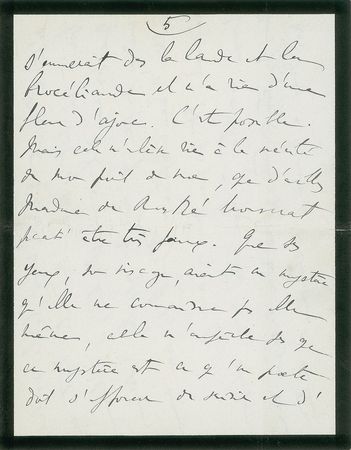 5
s'ennuierait dans la lande et la
Brocéliande et n'a rien d'une
fleur d'ajonc. C'est possible.
Mais cela n'enlève rien à la vérité
de mon point de vue, que d'ailleurs
Madame de
peut être très faux. Que ses
yeux, son visage, aient un mystère
qu'elle ne comprendra pas elle
même, cela n'empêche pas que
ce mystère est ce qu'un poète
doit s'efforcer de et d'